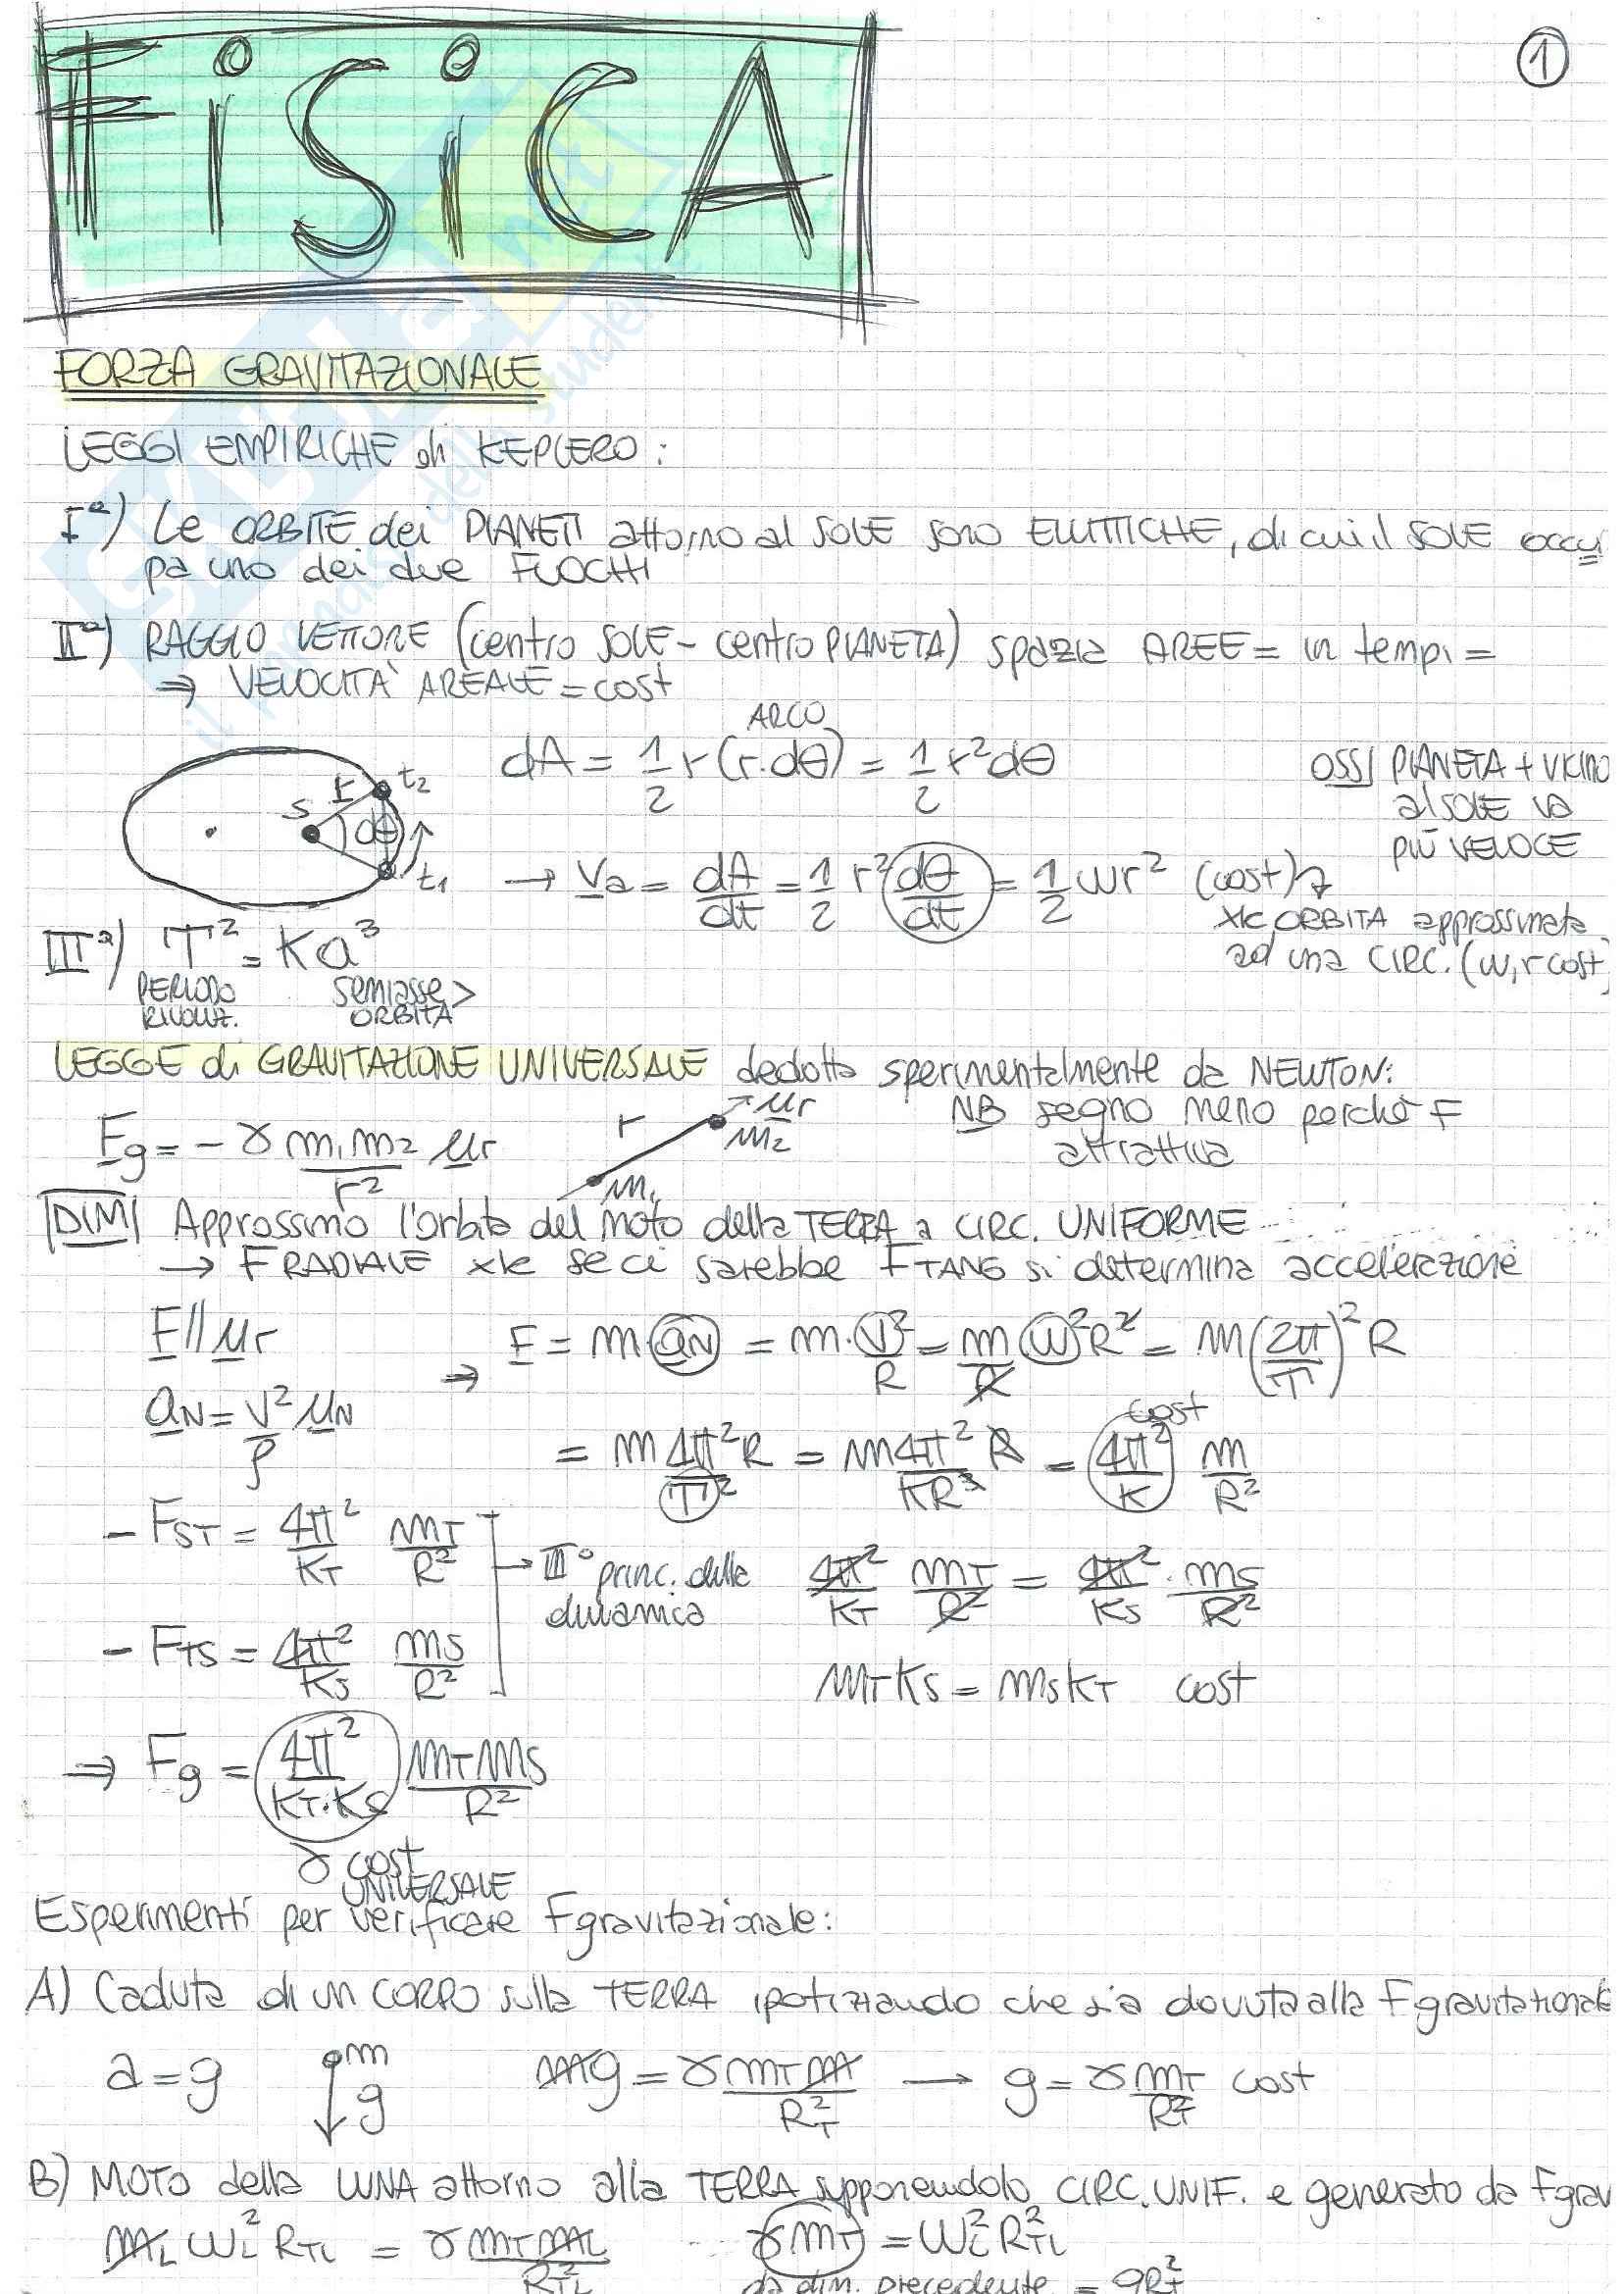 FiSiCA
1
FORZA GRAVITAZIONALE
LEGGI EMPIRICHE di KEPLERO:
Iª) Le ORBITE dei PIANETI attorno al SOLE sono ELLITTICHE, di cui il SOLE occu
pa uno dei due FUOCHI
IIª) RAGGIO VETTORE (centro SOLE - centro PIANETA) spazia AREE = in tempi =
⇒ VELOCITÀ AREALE = cost
ARCO
dA = 1/2 r (r·dθ) = 1/2 r² dθ
OSS/ PIANETA + VICINO
al SOLE va
PIÙ VELOCE
S r t2 dθ t1
→ Va = dA/dt = 1/2 r² dθ/dt = 1/2 ωr² (cost)
xk ORBITA approssimata
ad una CIRC. (ω, r cost)
IIIª) T² = K a³
PERIODO RIVOLUZ.
semiasse > ORBITA
LEGGE di GRAVITAZIONE UNIVERSALE dedotta sperimentalmente da NEWTON:
Fg = - γ m1m2/r² μr
r μr m2 m1
NB segno meno perchè F
attrattiva
DIM Approssimo l'orbita del moto della TERRA a CIRC. UNIFORME
→ F RADIALE xk se ci sarebbe F TANG si determina accelerazione
F // μr
⇒ F = m·aN = m·V²/R = m/R ω²R² = m(2π/T)² R
aN = V²/ρ μN
= m 4π²/T² R = m4π²/KR³ R = 4π²/K m/R²
cost
- FST = 4π²/KT mT/R²
→ III° princ. della
dinamica
4π²/KT mT/R² = 4π²/KS · mS/R²
- FTS = 4π²/KS mS/R²
mT KS = mS KT cost
⇒ Fg = 4π²/KT·KS mT mS/R²
γ cost
UNIVERSALE
Esperimenti per verificare F gravitazionale:
A) Caduta di un CORPO sulla TERRA ipotizzando che sia dovuta alla F gravitazionale
a = g
m
g
mg = γ mT m/RT² → g = γ mT/RT² cost
B) MOTO della LUNA attorno alla TERRA supponendolo CIRC. UNIF. e generato da F grav
mL ωL² RTL = γ mT mL/RTL²
γ mT = ωL² RTL²
da dim. precedente = gRT²